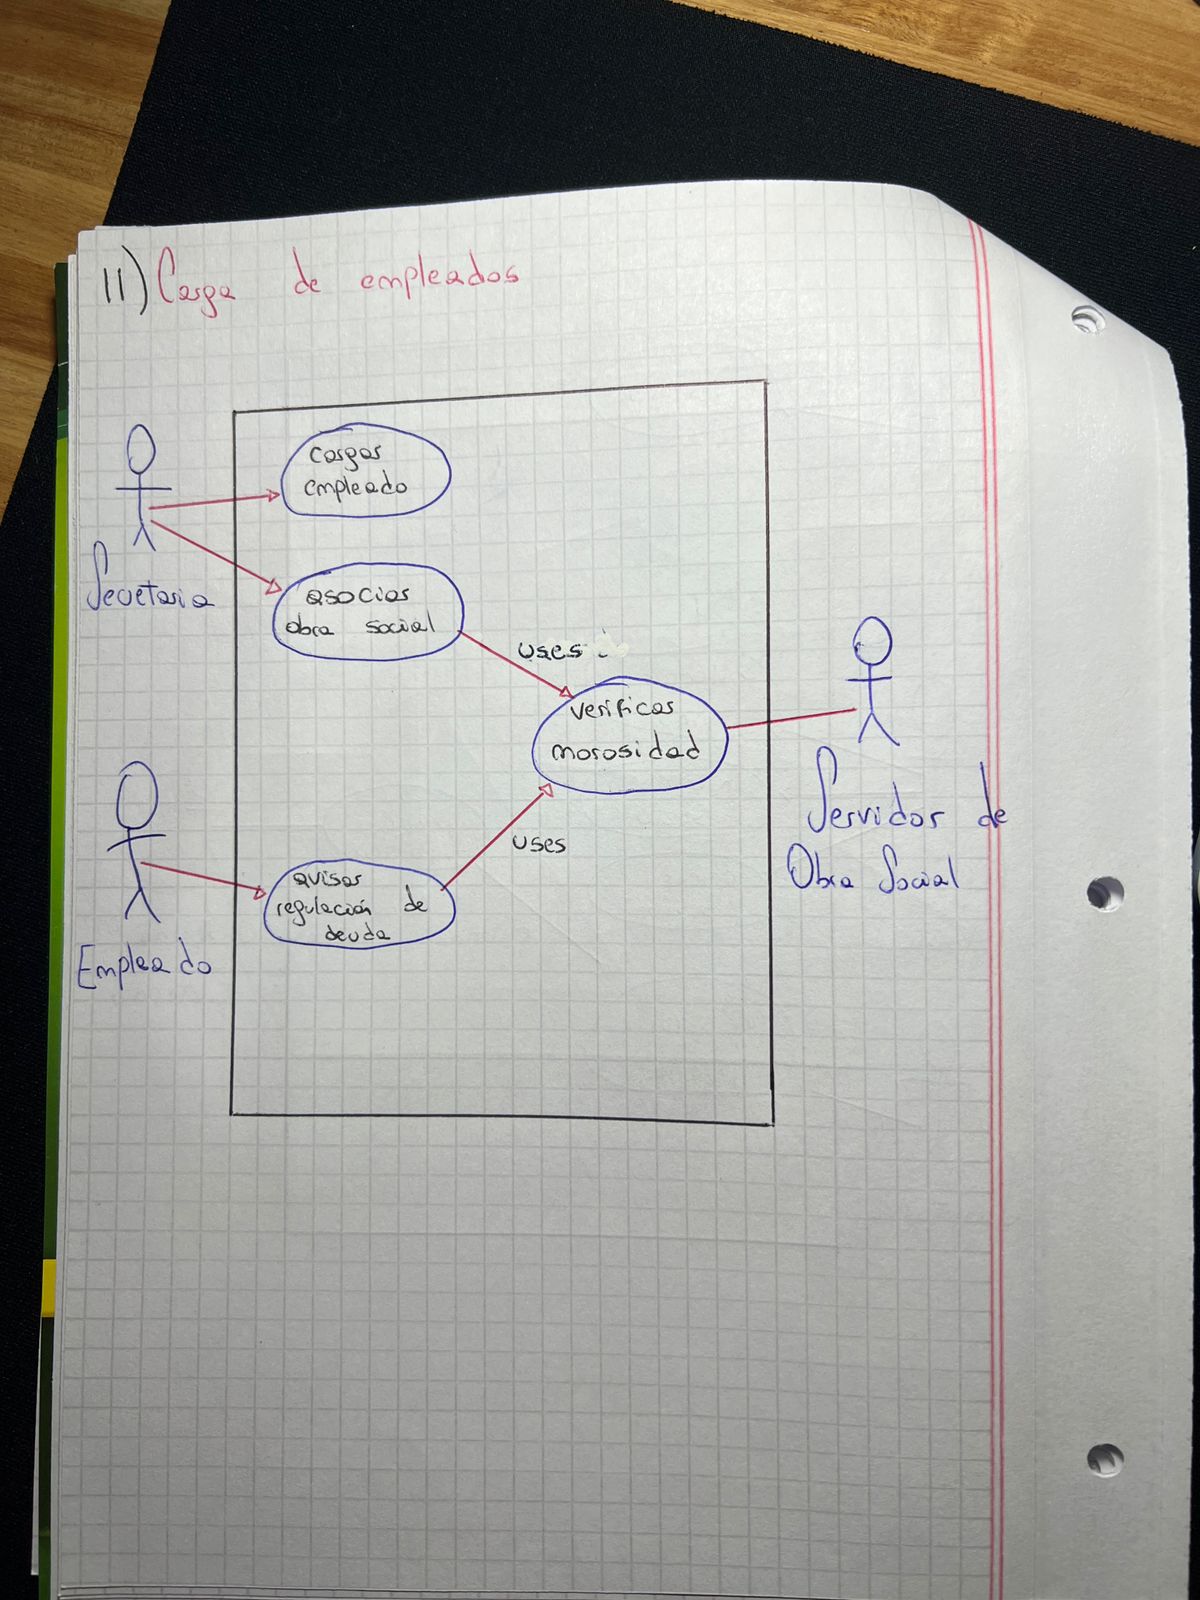 11) Carga de empleados
cargar
empleado
Secretaria
asociar
obra social
uses
verificar
morosidad
Servidor de
Obra Social
uses
avisar
regulación de
deuda
Empleado